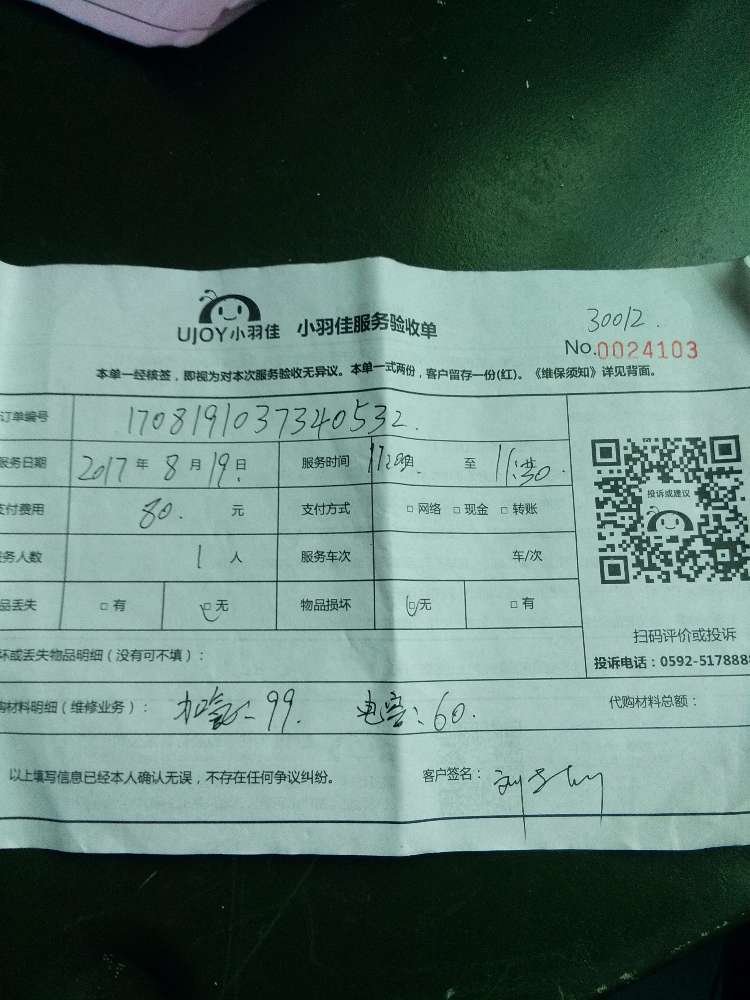 30012.
UJOY小羽佳 小羽佳服务验收单
No.0024103
本单一经核签，即视为对本次服务验收无异议。本单一式两份，客户留存一份(红)。《维保须知》详见背面。
订单编号 1708191037340532.
服务日期 2017 年 8 月 19 日 服务时间 至
支付费用 80. 元 支付方式 □ 网络 □ 现金 □ 转账
务人数 1 人 服务车次 车/次
品丢失 □ 有 □ 无 物品损坏 □ 无 □ 有
投诉或建议
扫码评价或投诉
投诉电话：0592-5178888
坏或丢失物品明细（没有可不填）：
购材料明细（维修业务）： 加氟：99. 电容：60. 代购材料总额：
以上填写信息已经本人确认无误，不存在任何争议纠纷。 客户签名：